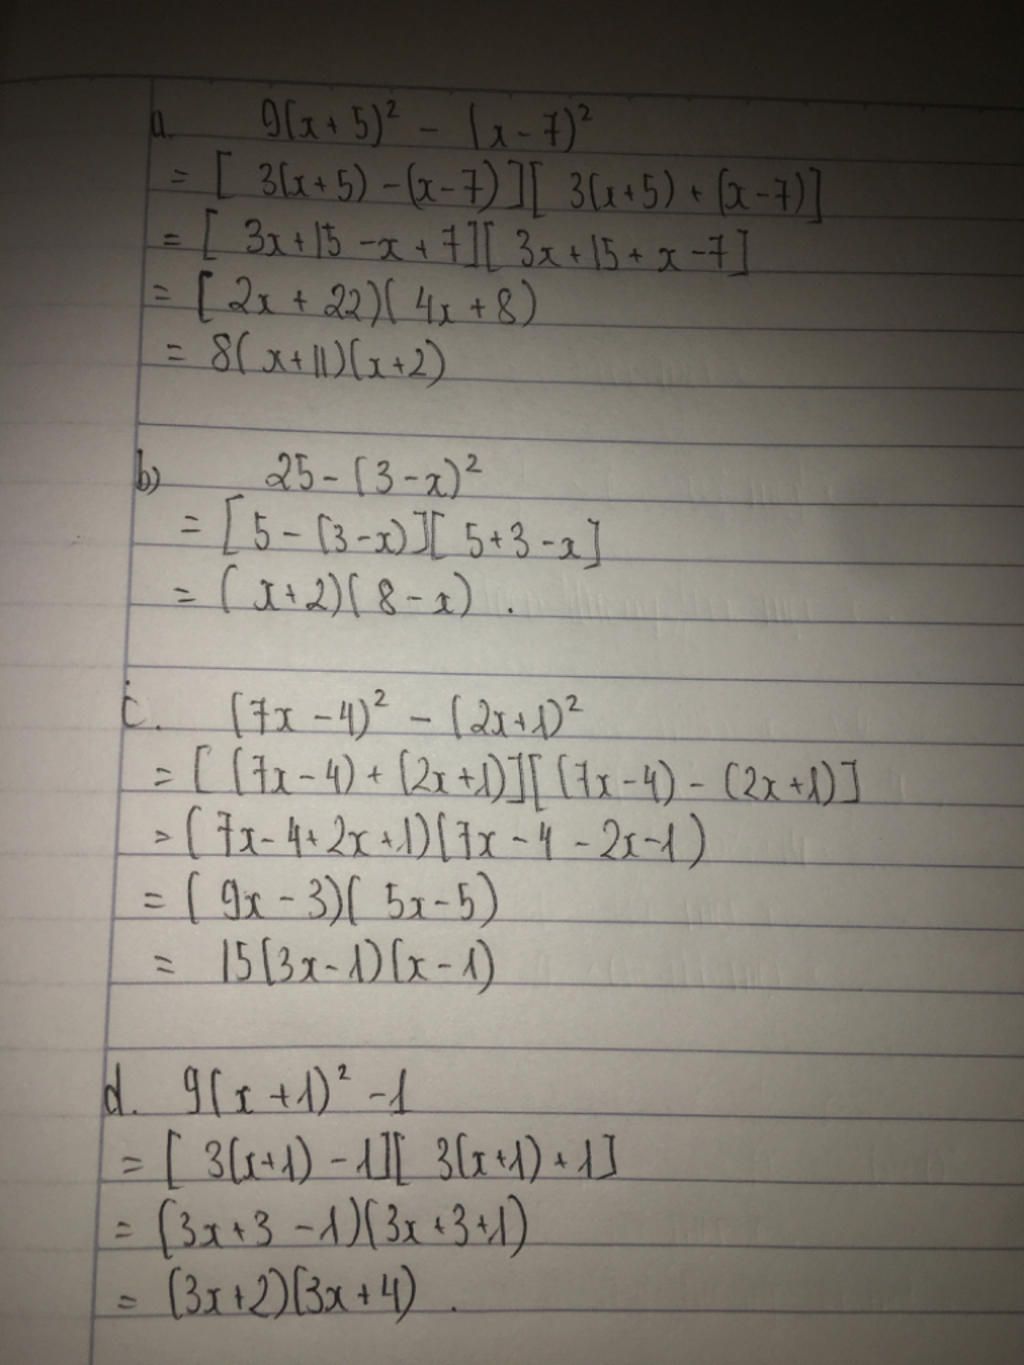 a. 9(x+5)² - (x-7)²
= [ 3(x+5) -(x-7) ][ 3(x+5) + (x-7)]
= [ 3x+15 -x+7][ 3x+15+ x-7]
= [ 2x + 22)( 4x+8)
= 8( x+11)(x+2)
b) 25-(3-x)²
= [ 5-(3-x)][ 5+3-x]
= ( x+2)( 8-x) .
c. (7x-4)² - (2x+1)²
= [ (7x-4)+(2x+1)][(7x-4)-(2x+1)]
= ( 7x-4+2x+1)(7x-4-2x-1)
= ( 9x-3)( 5x-5)
= 15(3x-1)(x-1)
d. 9(x+1)² -1
= [ 3(x+1) -1][ 3(x+1)+1]
= (3x+3 -1)(3x+3+1)
= (3x+2)(3x+4) .